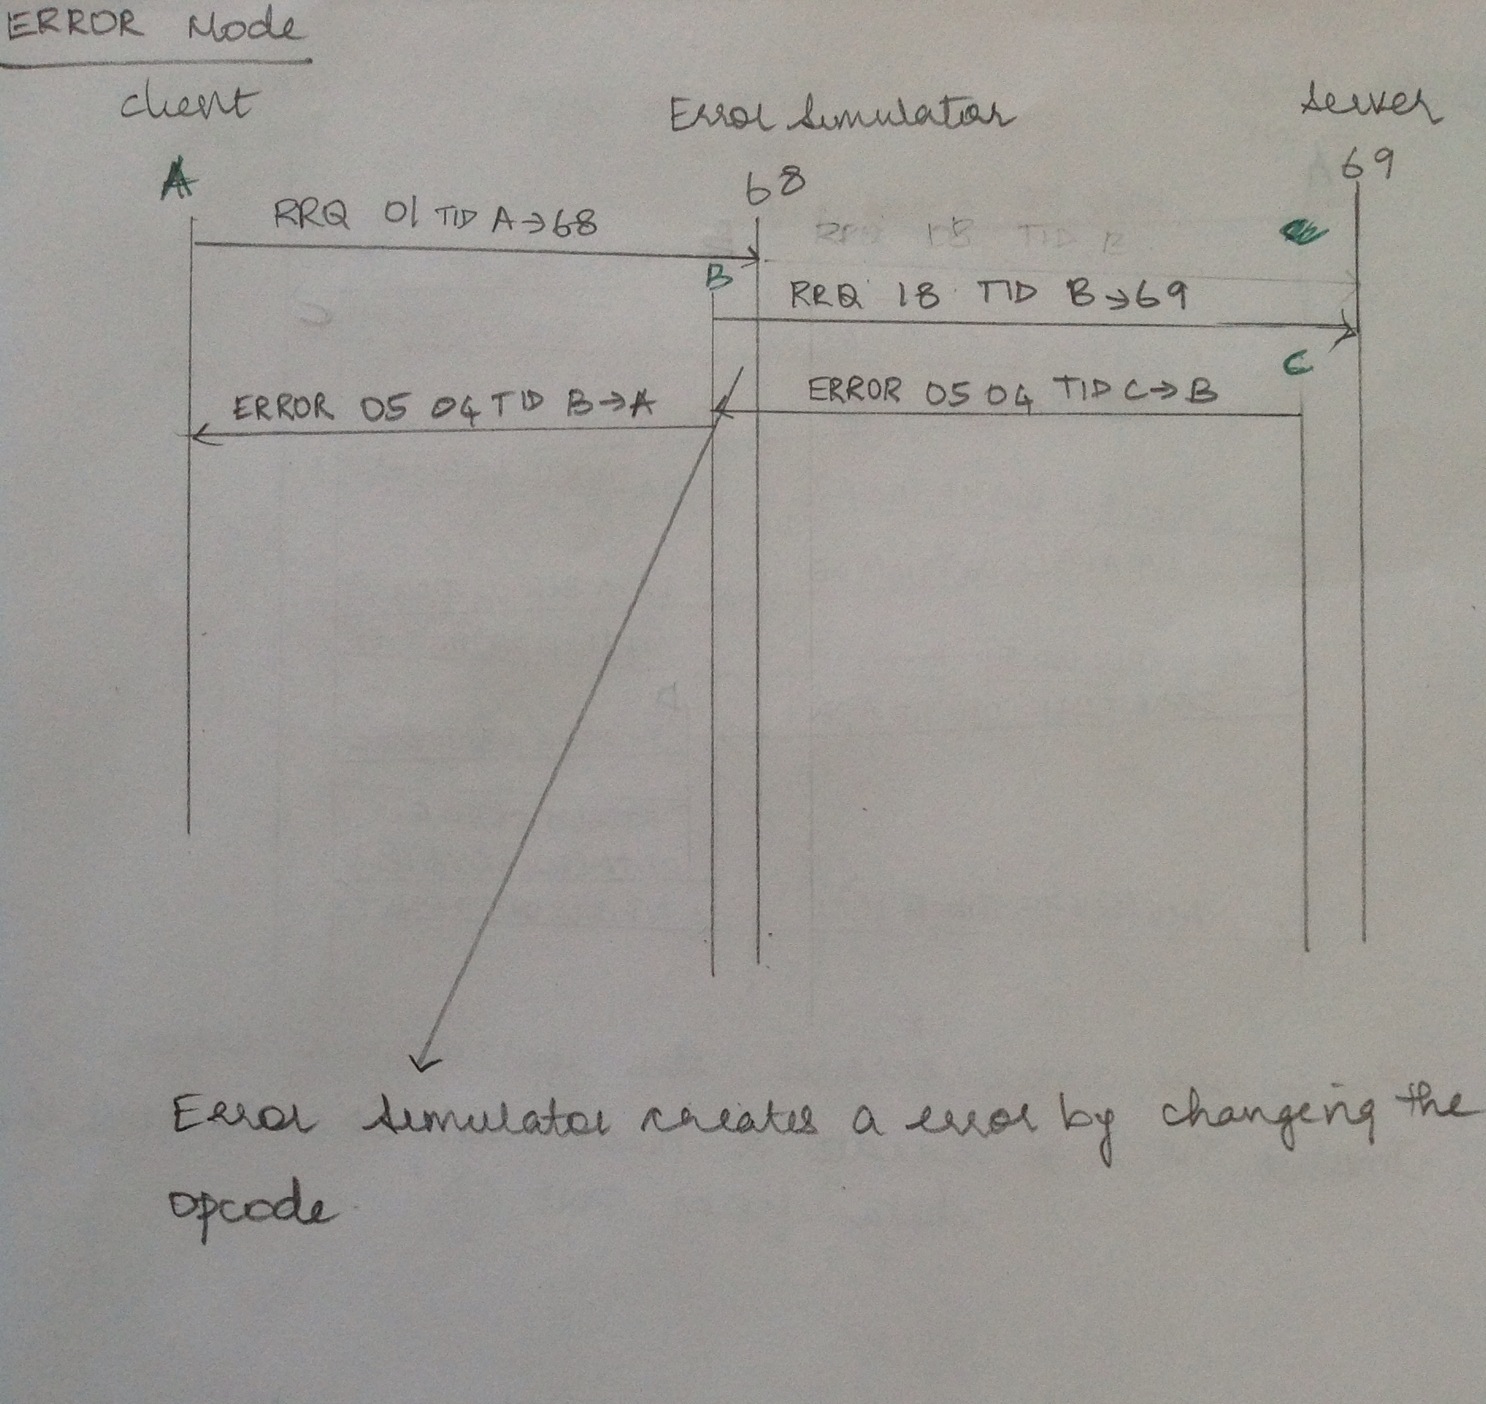 ERROR Mode
client Error Simulator Server
A 68 69
RRQ 01 TID A→68
B
RRQ 18 TID B→69
C
ERROR 05 04 TID C→B
ERROR 05 04 TID B→A
Error Simulator creates a error by changing the
opcode